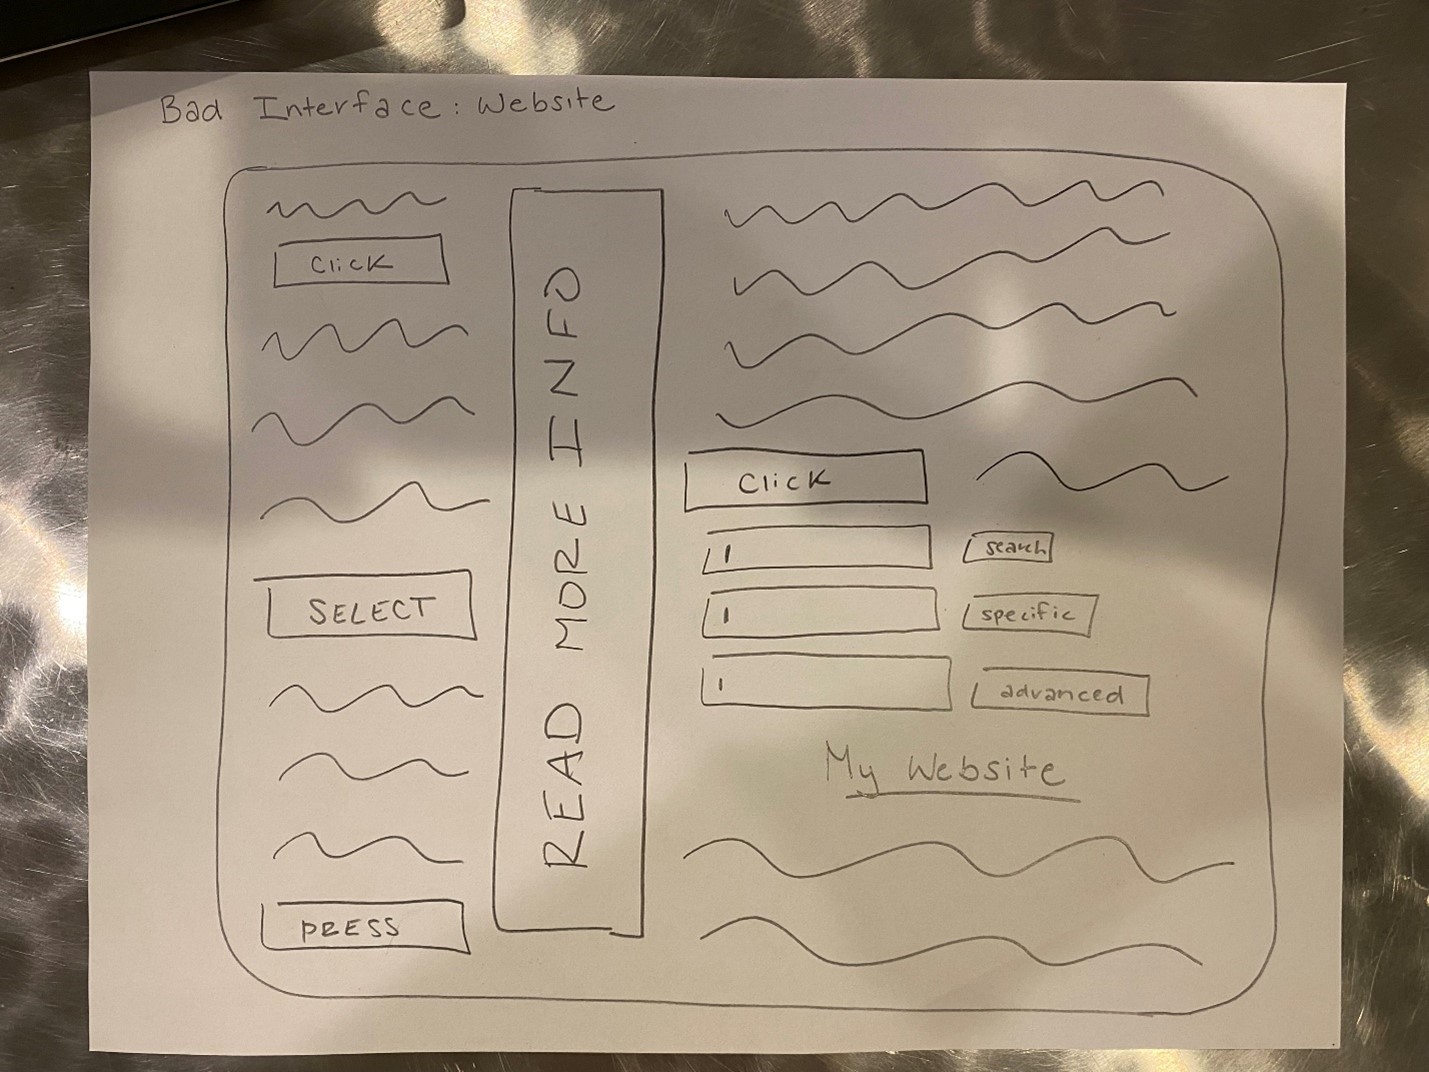 Bad Interface: Website
Click
SELECT
PRESS
READ MORE INFO
Click
search
specific
advanced
My Website